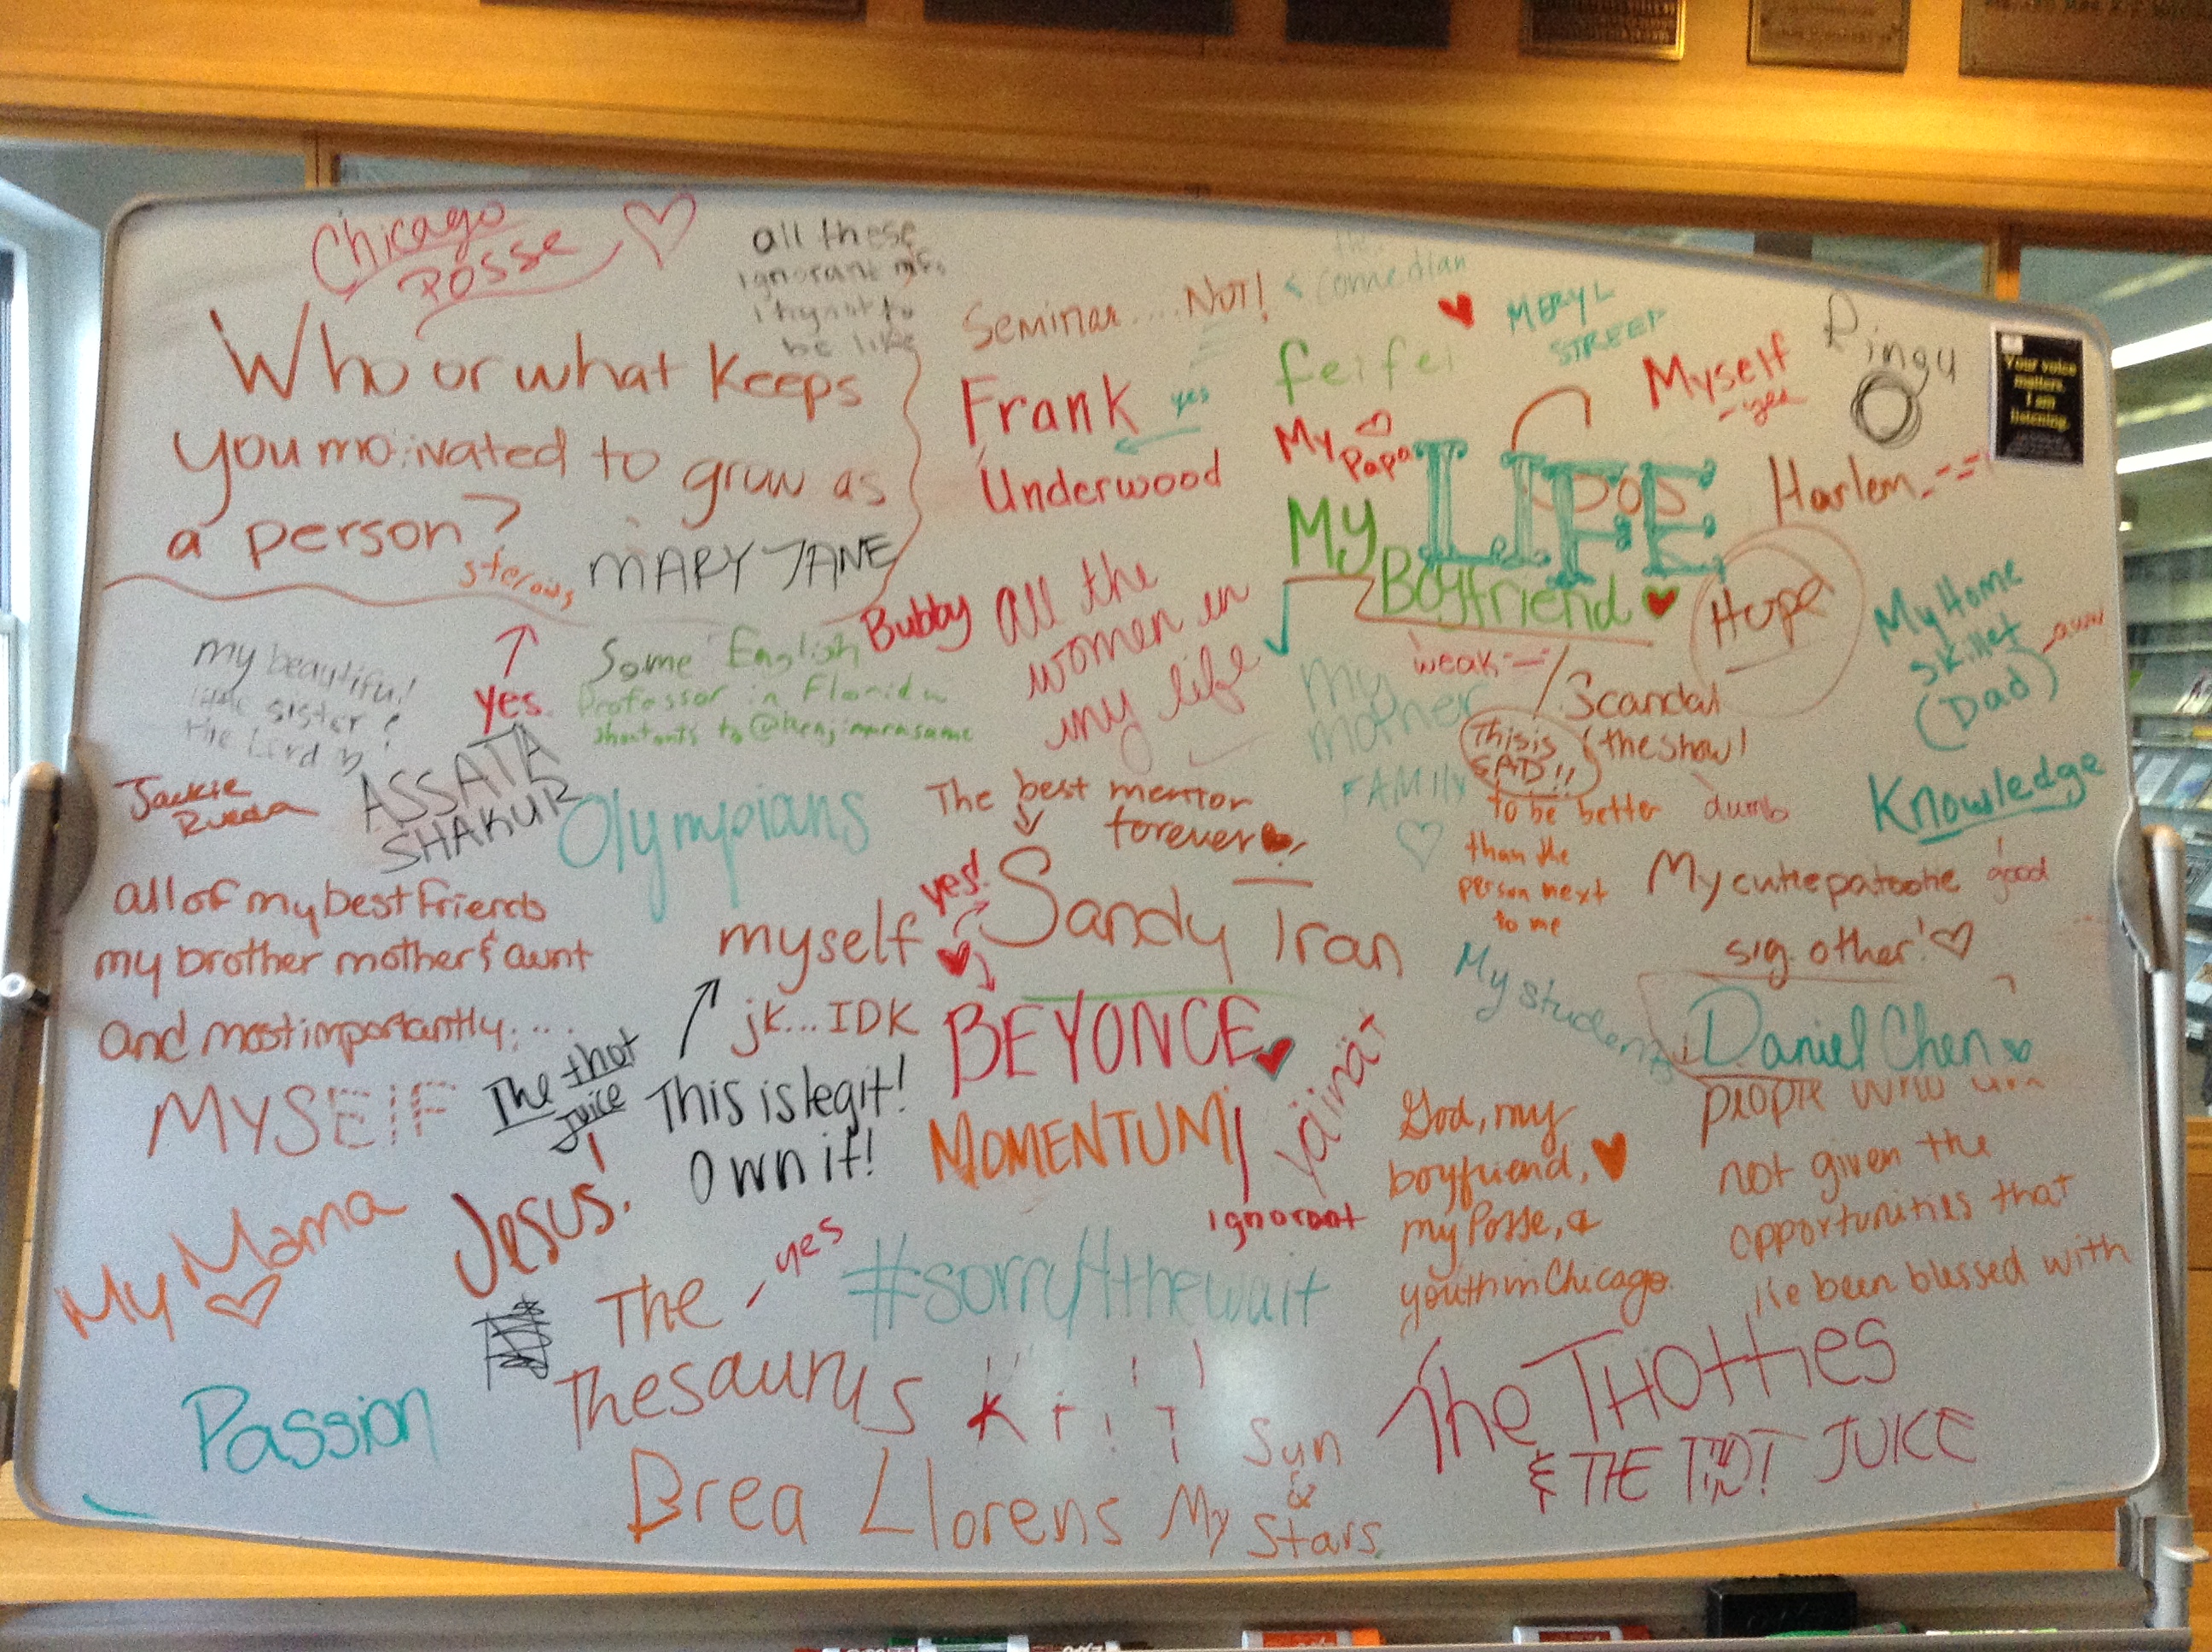 Chicago
Posse
all these
ignorant mfs
be like
Who or what keeps
you motivated to grow as
a person?
steroids
MARY JANE
Seminar.... NOT!
comedian
Frank
yes
Underwood
feifei
MERYL
STREEP
Myself
- yes
Pingu
Your voice
matters.
I am
listening.
My
Papa
LIFE
Harlem
My
Boyfriend
weak
Hope
My Home
Skillet
(Dad)
Bubby
all the
women in
my life
my beautiful
little sister &
the Lord
yes
Some English
Professor in Florida
shoutouts to @kenjimurasame
My
mother
FAMILY
Scandal
(the show)
This is
SAD!!
dumb
Knowledge
good
Jackie
Rueda
ASSATA
SHAKUR
Olympians
The best mentor
forever
to be better
than the
person next
to me
My cutiepatootie
sig. other!
all of my best friends
my brother mother & aunt
and most importantly....
MYSELF
myself
yes!
Sandy Tran
jk... IDK
BEYONCE
My students
Daniel Chen
The thot
Juice
This is legit!
Own it!
MOMENTUM
ignorant
God, my
boyfriend,
my Posse, &
youth in Chicago.
people who
not given the
opportunities that
I've been blessed with
My Mama
Jesus.
The
yes
Thesaurus
#sorry4thewait
Passion
K r i T
The THOTties
& THE JUICE
Brea Llorens
My
Sun
&
Stars